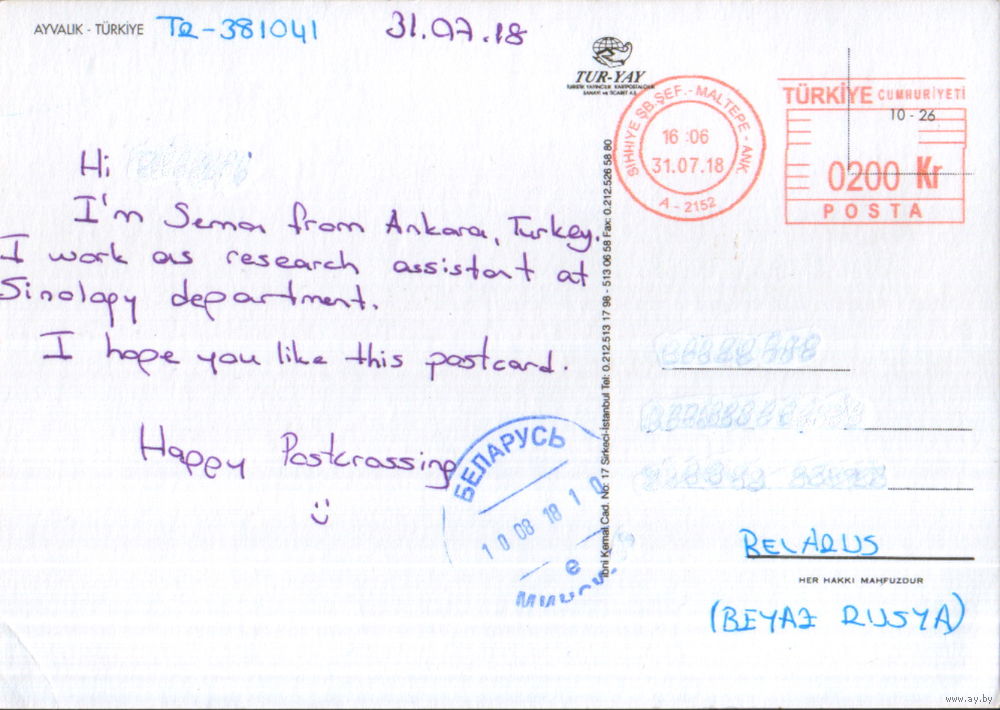 AYVALIK - TÜRKİYE TR-381041 31.07.18
TUR-YAY
TURİSTİK YAYINCILIK KARTPOSTALCILIK
SANAYİ ve TİCARET A.Ş.
SIHHİYE ŞB.ŞEF.- MALTEPE - ANK.
16:06
31.07.18
A - 2152
TÜRKİYE CUMHURİYETİ
10 - 26
0200 Kr
POSTA
Hi
I'm Sema from Ankara, Turkey.
I work as research assistant at
Sinology department.
I hope you like this postcard.
Happy Postcrossing
:)
БЕЛАРУСЬ
10 08 18 10
e
İbni Kemal Cad. No: 17 Sirkeci-İstanbul Tel: 0.212.513 17 98 - 513 06 58 Fax: 0.212.526 58 80
BELARUS
HER HAKKI MAHFUZDUR
(BEYAZ RUSYA)
www.ay.by